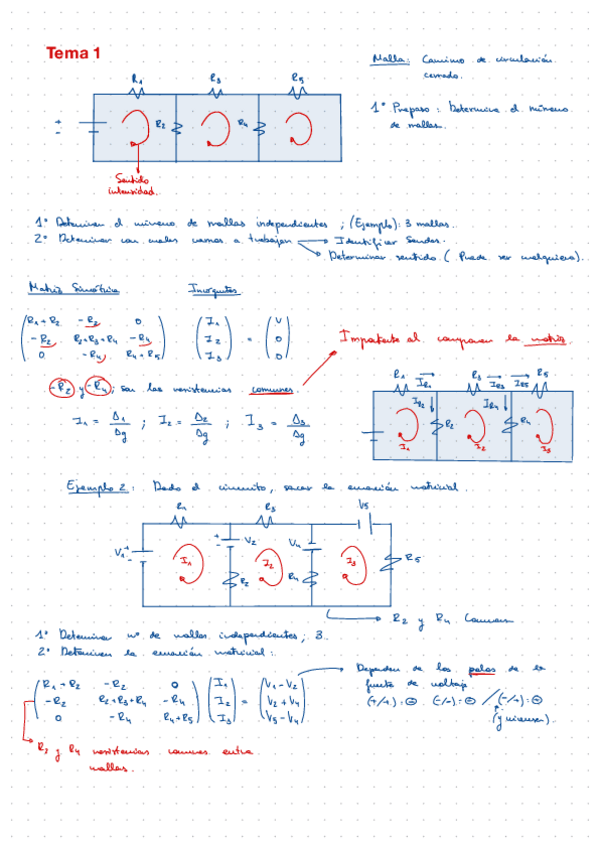 Tema 1
Malla: Camino de circulación
cerrado.
1º Prepaso: Determinar el número
de mallas.
R1 R3 R5
+
-
R2 R4
Sentido
intensidad.
1º Determinar el número de mallas independientes ; (Ejemplo): 3 mallas.
2º Determinar con cuales vamos a trabajar → Identificar sendos.
→ Determinar sentido. ( Puede ser cualquiera).
Matriz Simétrica Incógnitas
R1+R2 -R2 0
-R2 R2+R3+R4 -R4
0 -R4 R4+R5
I1
I2
I3
=
V
0
0
Importante al componer la matriz.
-R2 y -R4; son las resistencias comunes.
I1 = Δ1/Δg ; I2 = Δ2/Δg ; I3 = Δ3/Δg
R1 IR1 R3 IR3 IR5 R5
IR2 R2 IR4 R4
I1 I2 I3
Ejemplo 2: Dado el circuito, sacar la ecuación matricial.
R1 R3 V5
V1 + - + - V2 V4 R5
I1 I2 I3
R2 R4
R2 y R4 Comunes
1º Determinar nº de mallas independientes; 3.
2º Determinar la ecuación matricial:
R1+R2 -R2 0
-R2 R2+R3+R4 -R4
0 -R4 R4+R5
I1
I2
I3
=
V1-V2
V2+V4
V5-V4
Dependen de los polos de la
fuente de voltaje
(+/+): ⊖ (-/-): ⊖ / (-/+): ⊖
(y viceversa).
R2 y R4 resistencias comunes entre
mallas.